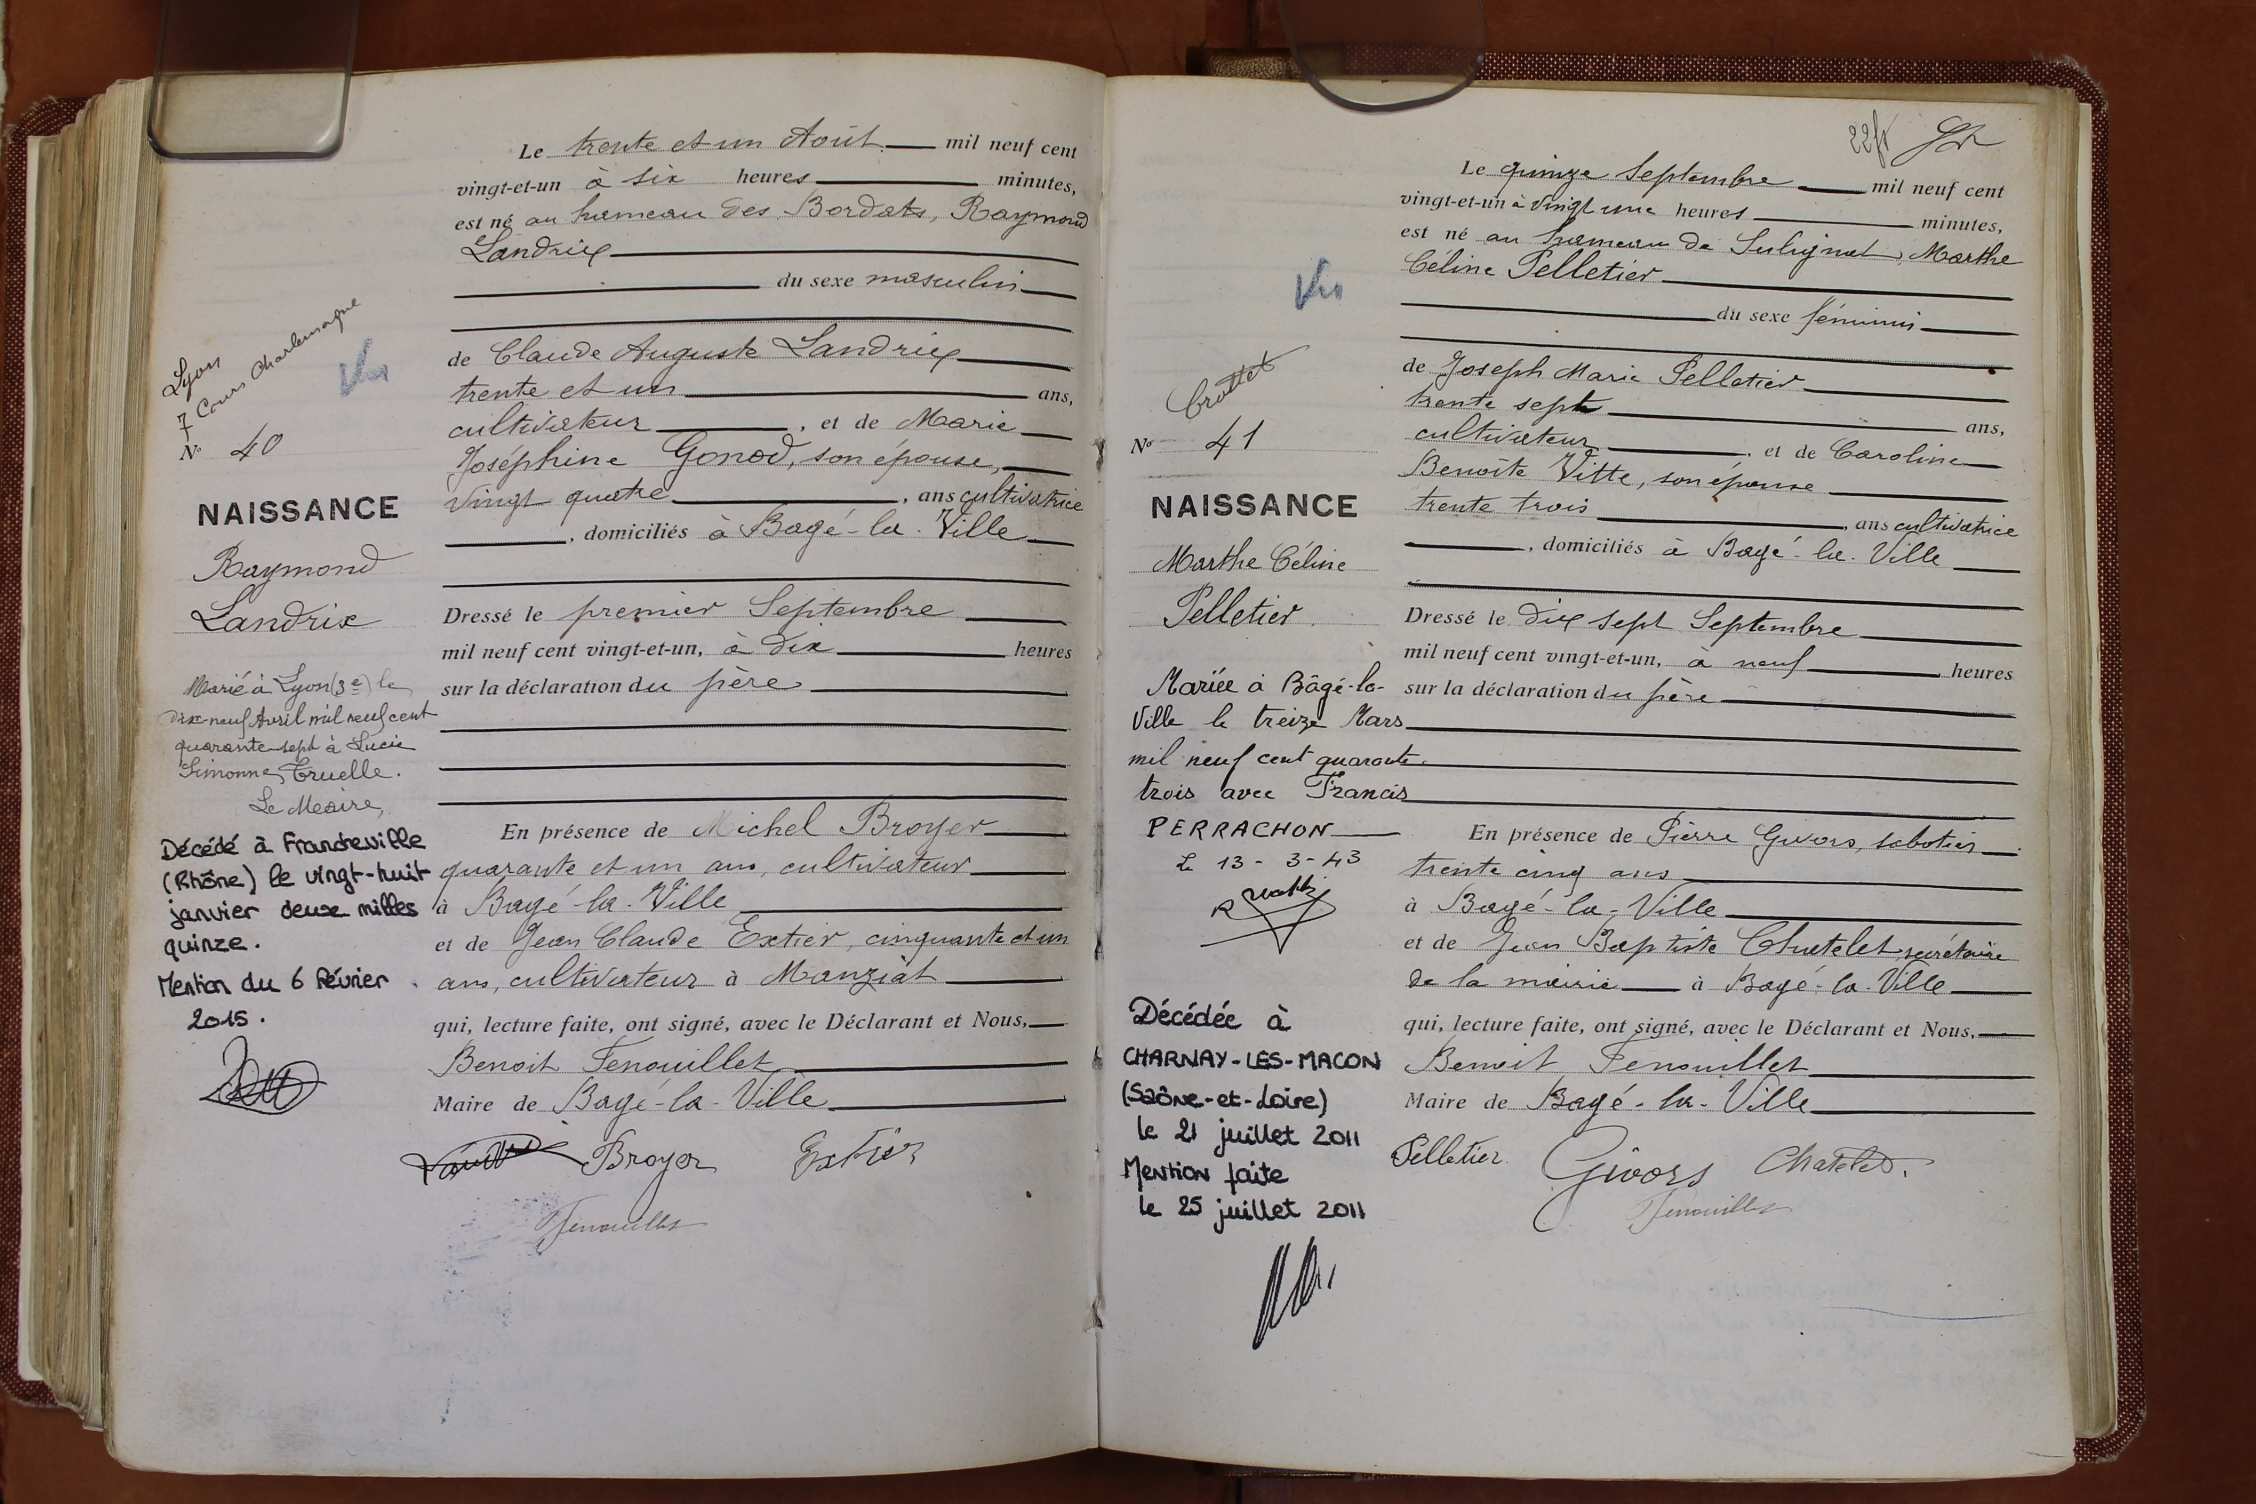 Lyon
7 Cours Charlemagne
Vu
N° 40
NAISSANCE
Raymond
Landrix
Marié à Lyon (3e) le
dix-neuf Avril mil neuf cent
quarante sept à Lucie
Simonne Truelle.
Le Maire,
Décédé à Francheville
(Rhône) le vingt-huit
janvier deux milles
quinze.
Mention du 6 février
2015.
Le trente et un Août mil neuf cent
vingt-et-un à six heures minutes,
est né au hameau des Bordats, Raymond
Landrix
du sexe masculin
de Claude Auguste Landrix
trente et un ans,
cultivateur, et de Marie
Joséphine Gonod, son épouse,
vingt quatre, ans cultivatrice
, domiciliés à Bagé-la-Ville
Dressé le premier Septembre
mil neuf cent vingt-et-un, à dix heures
sur la déclaration du père
En présence de Michel Broyer
quarante et un ans, cultivateur
à Bagé-la-Ville
et de Jean Claude Extier, cinquante et un
ans, cultivateur à Manziat
qui, lecture faite, ont signé, avec le Déclarant et Nous,
Benoit Fenouillet
Maire de Bagé-la-Ville
Broyer Extier
Fenouillet
22f
Vu
Crottet
N° 41
NAISSANCE
Marthe Céline
Pelletier
Mariée à Bâgé-la-
Ville le treize Mars
mil neuf cent quarante
trois avec Francis
PERRACHON
Le 13-3-43
Décédée à
CHARNAY-LES-MACON
(Saône-et-Loire)
le 21 juillet 2011
Mention faite
le 25 juillet 2011
Le quinze Septembre mil neuf cent
vingt-et-un à vingt une heures minutes,
est né au hameau de Sulignat, Marthe
Céline Pelletier
du sexe féminin
de Joseph Marie Pelletier
trente sept ans,
cultivateur, et de Caroline
Benoîte Vitte, son épouse
trente trois, ans cultivatrice
, domiciliés à Bagé-la-Ville
Dressé le dix sept Septembre
mil neuf cent vingt-et-un, à neuf heures
sur la déclaration du père
En présence de Pierre Givors, sabotier
trente cinq ans
à Bagé-la-Ville
et de Jean Baptiste Chatelet, secrétaire
de la mairie à Bagé-la-Ville
qui, lecture faite, ont signé, avec le Déclarant et Nous,
Benoit Fenouillet
Maire de Bagé-la-Ville
Pelletier Givors Chatelet.
Fenouillet